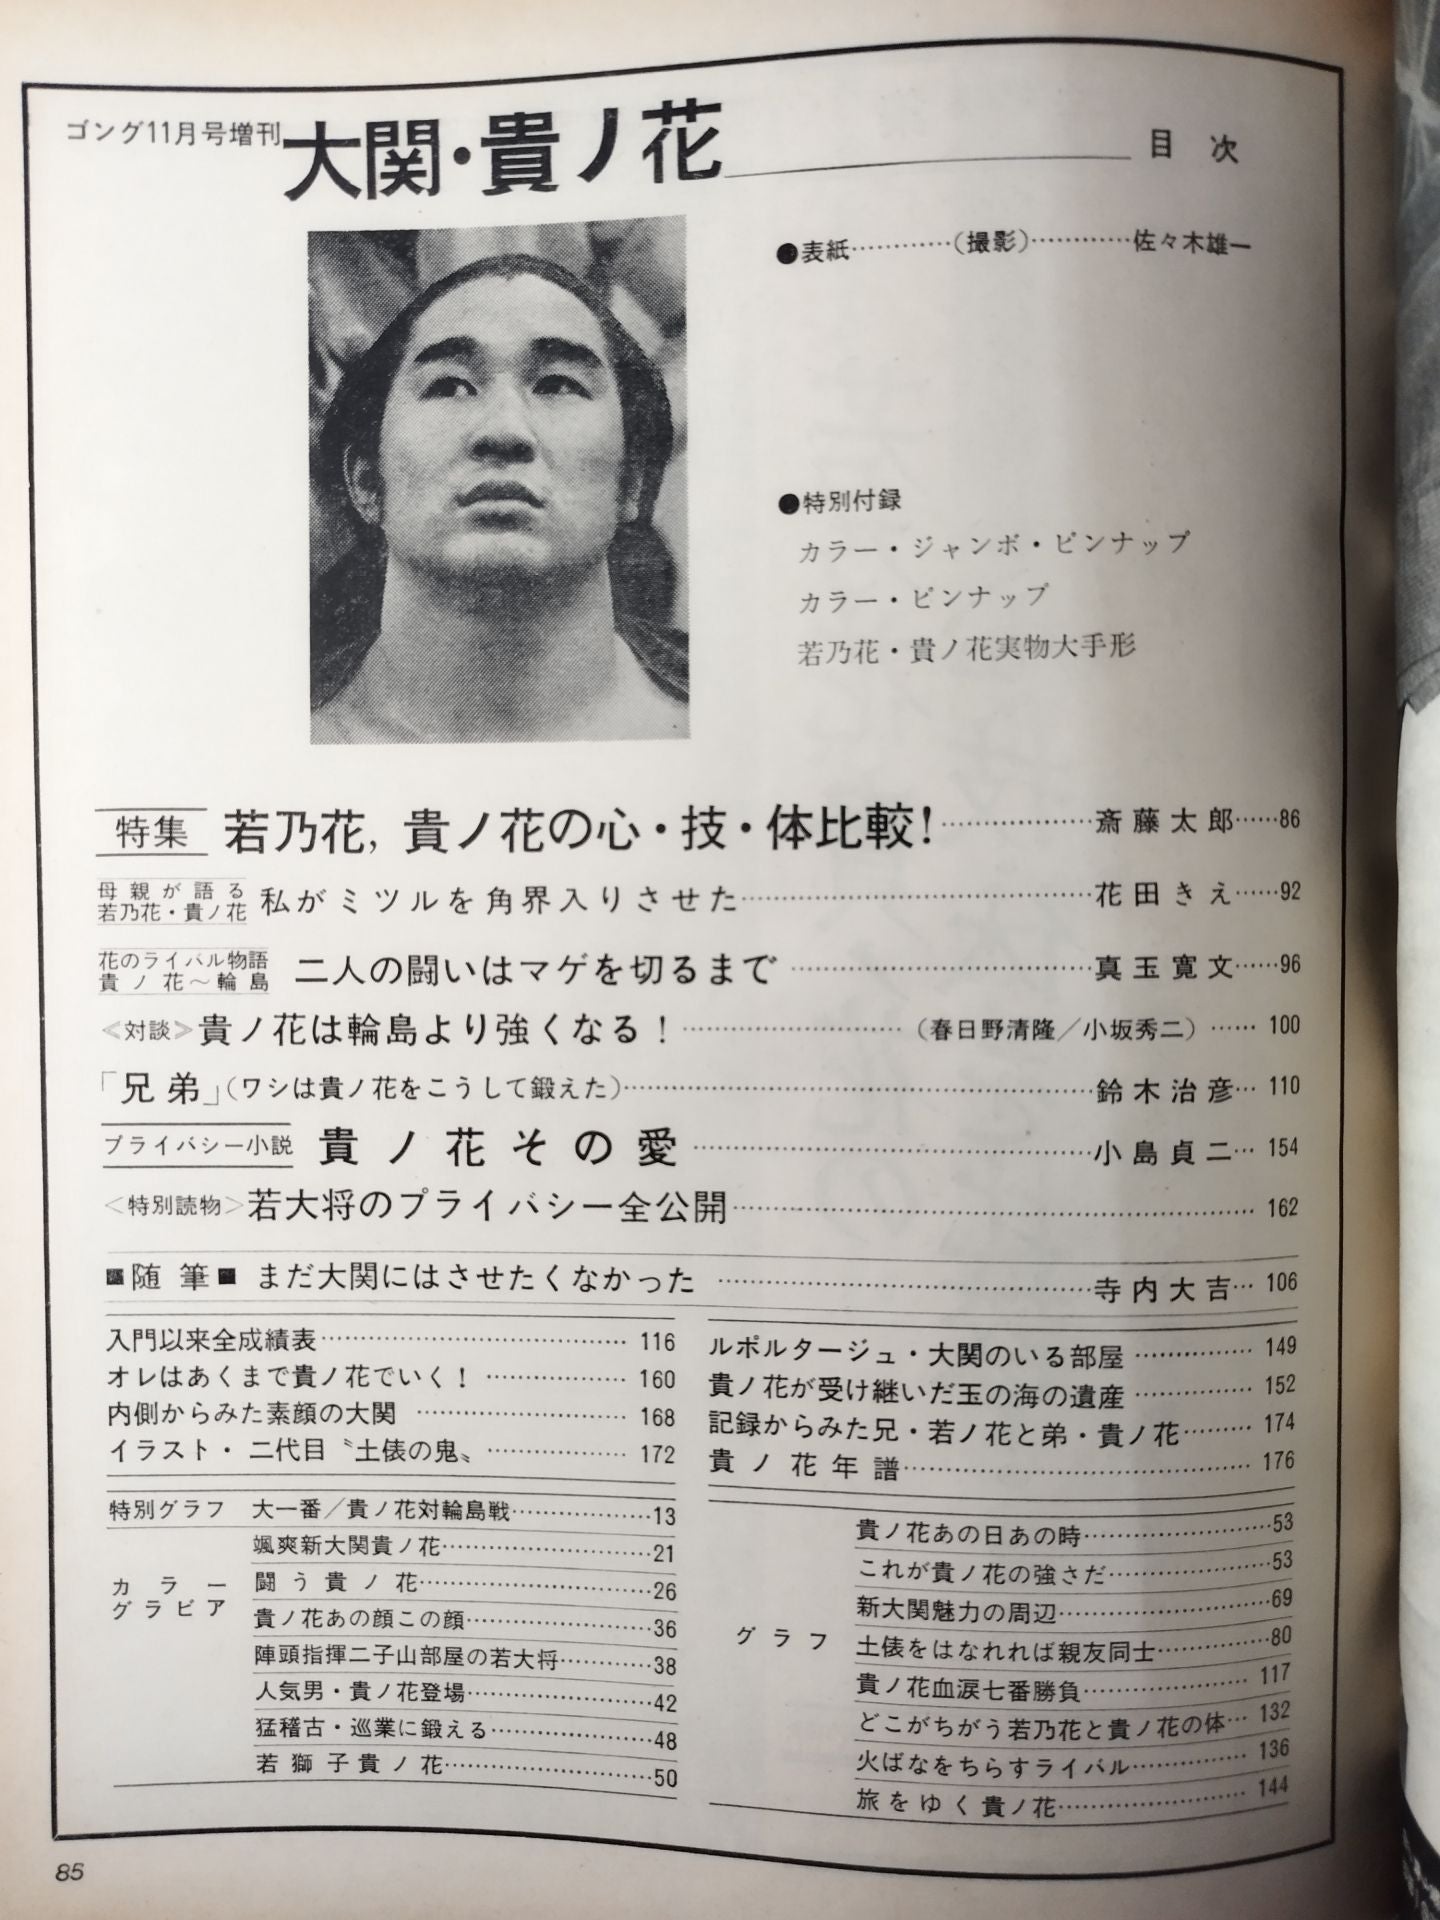 ゴング11月号増刊 大関・貴ノ花 目次
●表紙…………(撮影)…………佐々木雄一
●特別付録
カラー・ジャンボ・ピンナップ
カラー・ピンナップ
若乃花・貴ノ花実物大手形
特集 若乃花, 貴ノ花の心・技・体比較!………………斎藤太郎……86
母親が語る
若乃花・貴ノ花 私がミツルを角界入りさせた………………花田きえ……92
花のライバル物語
貴ノ花〜輪島 二人の闘いはマゲを切るまで………………真玉寛文……96
≪対談≫貴ノ花は輪島より強くなる!………………(春日野清隆/小坂秀二)……100
「兄弟」(ワシは貴ノ花をこうして鍛えた)………………鈴木治彦…110
プライバシー小説 貴ノ花その愛………………小島貞二…154
<特別読物>若大将のプライバシー全公開………………162
■随筆■ まだ大関にはさせたくなかった………………寺内大吉…106
入門以来全成績表………………116
オレはあくまで貴ノ花でいく!………………160
内側からみた素顔の大関………………168
イラスト・二代目〝土俵の鬼〟………………172
ルポルタージュ・大関のいる部屋……………149
貴ノ花が受け継いだ玉の海の遺産……………152
記録からみた兄・若ノ花と弟・貴ノ花………174
貴ノ花年譜………………176
特別グラフ 大一番/貴ノ花対輪島戦……………13
カラー
グラビア
颯爽新大関貴ノ花………………21
闘う貴ノ花………………26
貴ノ花あの顔この顔………………36
陣頭指揮二子山部屋の若大将…………38
人気男・貴ノ花登場………………42
猛稽古・巡業に鍛える………………48
若獅子貴ノ花………………50
グラフ
貴ノ花あの日あの時………………53
これが貴ノ花の強さだ………………53
新大関魅力の周辺………………69
土俵をはなれれば親友同士…………80
貴ノ花血涙七番勝負………………117
どこがちがう若乃花と貴ノ花の体…132
火ばなをちらすライバル……………136
旅をゆく貴ノ花………………144
85